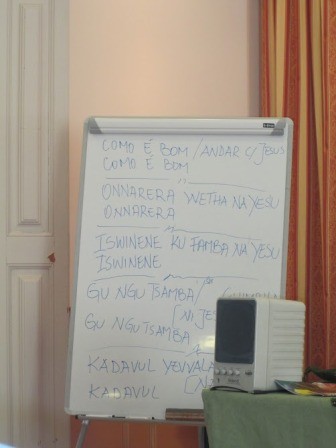 COMO É BOM / ANDAR C/ JESUS
COMO E BOM
ONNARERA WETHA NA YESU
ONNARERA
ISWINENE KU FAMBA NA YESU
ISWINENE
GU NGU TSAMBA /
NI JES
GU NGU TSAMBA
KADAVUL YEVVALA
KADAVUL